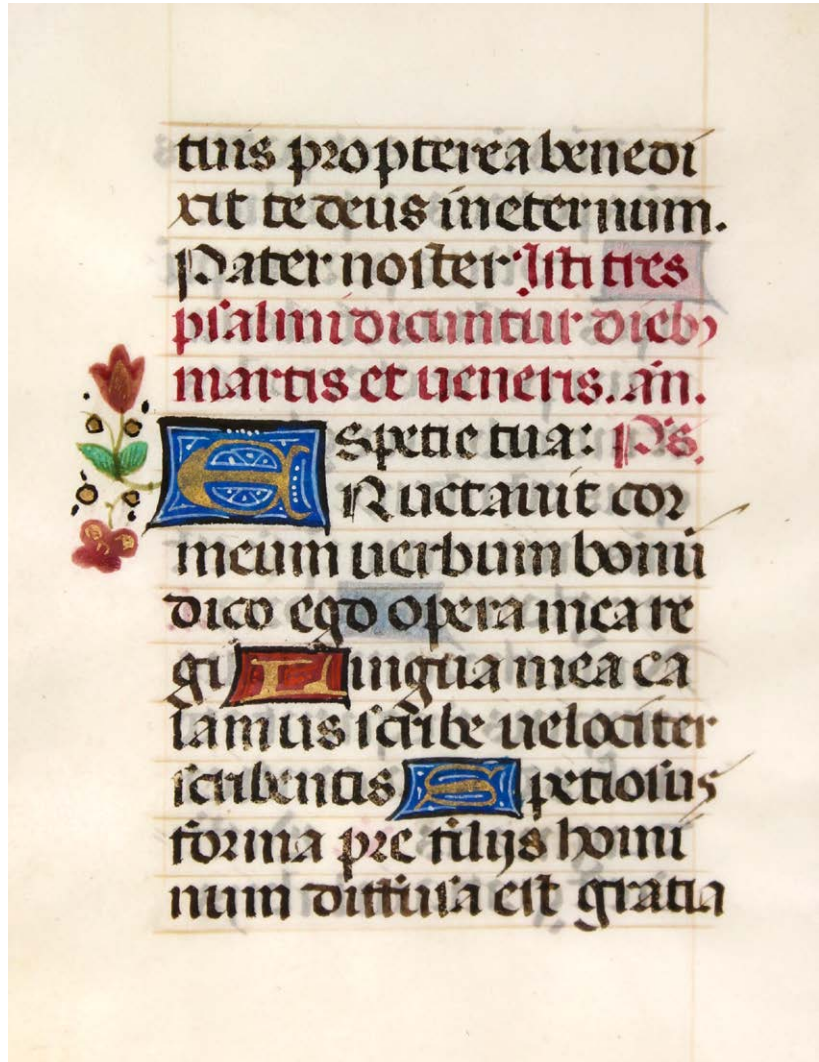 tuis propterea benedi
xit te deus in eternum.
Pater noster Isti tres
psalmi dicuntur dieb᷒
martis et ueneris. an̄.
E Spetie tua: Ps.
Ructauit cor
meum uerbum bonū
dico ego opera mea re
gi Lingua mea ca
lamus scribe uelociter
scribentis Spetiosus
forma pre filijs homi
num diffusa est gratia